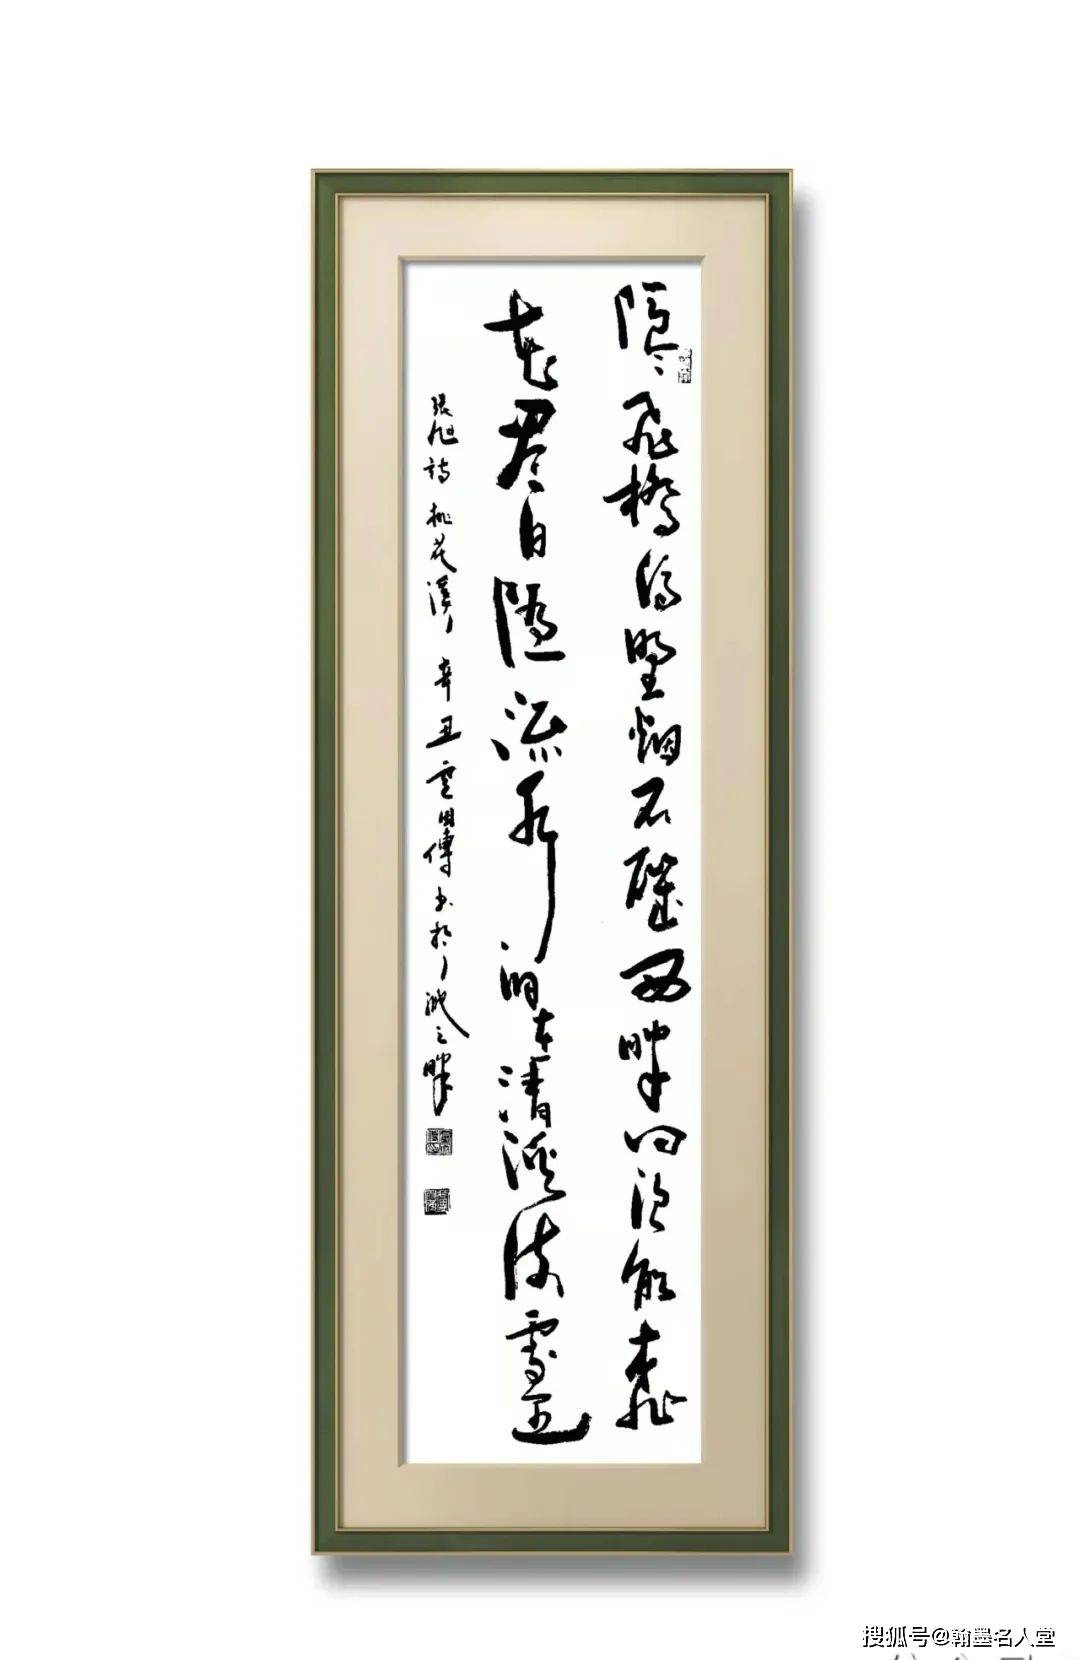 隐〻飞桥隔野烟石矶西畔问渔船桃
花尽日随流水洞在清溪何处边
张旭诗桃花溪辛丑
书于
之畔
搜狐号@翰墨名人堂